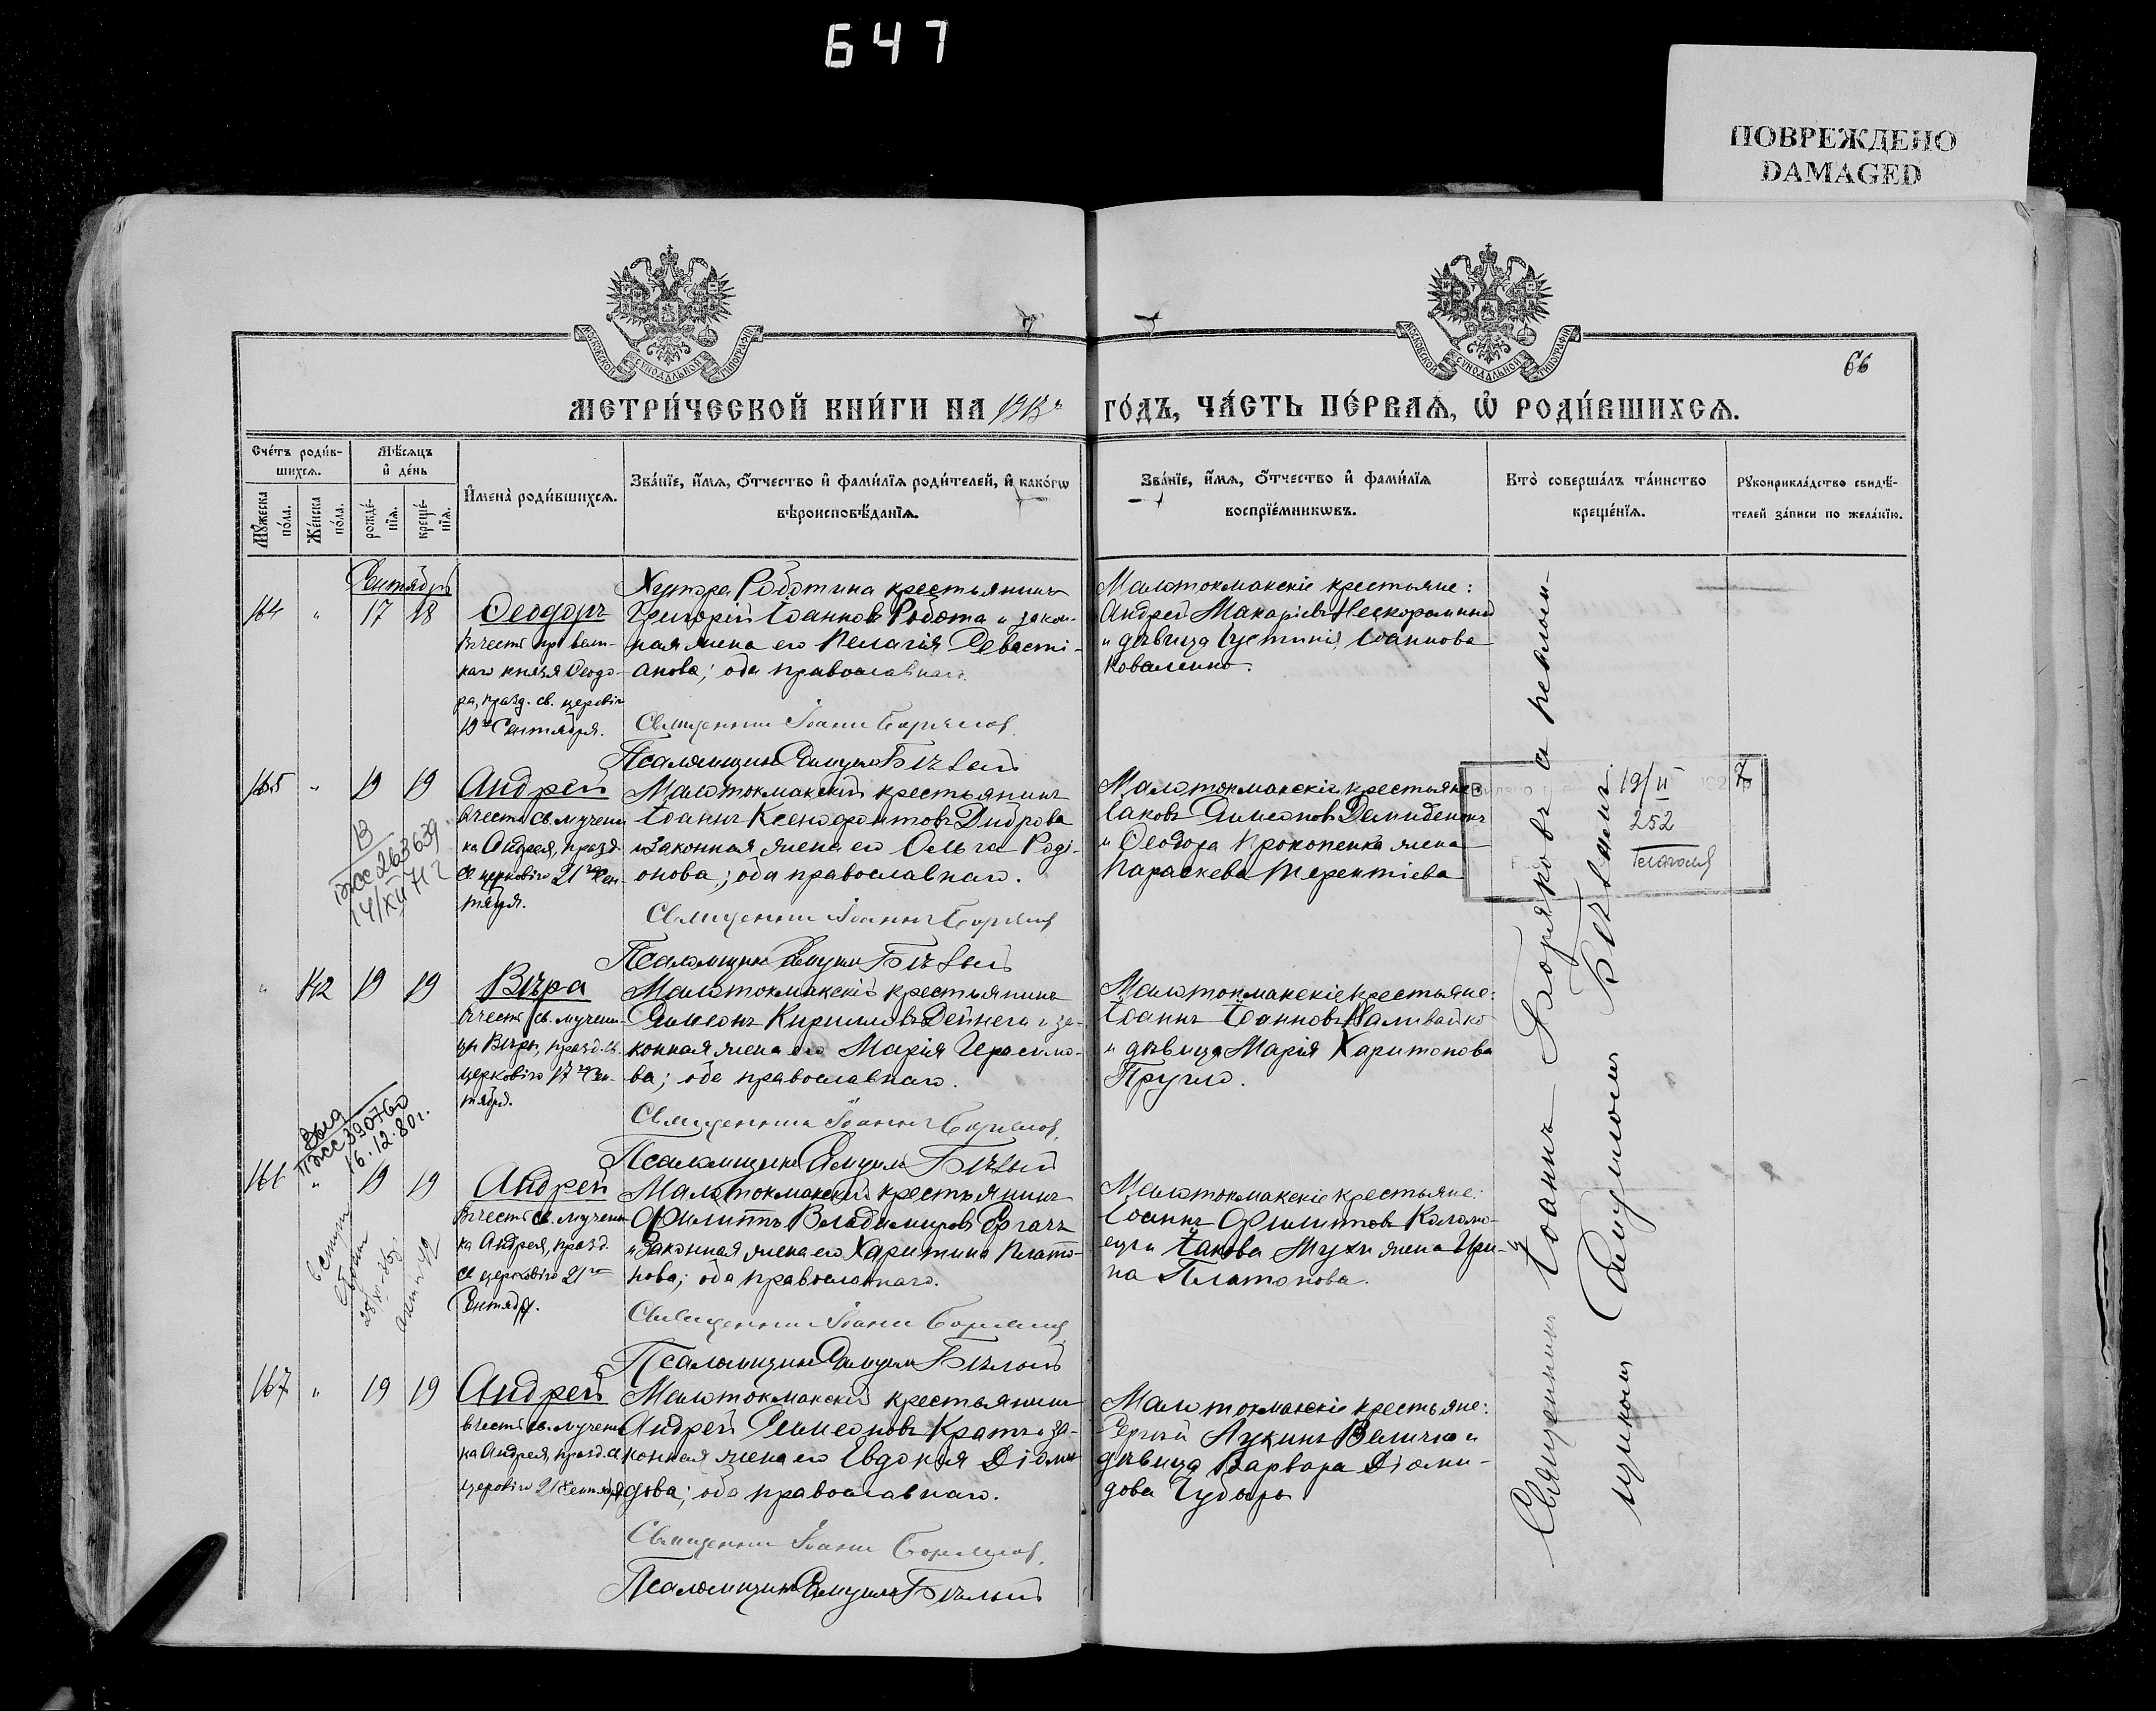 647
ПОВРЕЖДЕНО
DAMAGED
66
МЕТРИЧЕСКОЙ КНИГИ НА 1913 ГОДЪ, ЧАСТЬ ПЕРВАЯ, Ѡ РОДИВШИХСЯ.
Счетъ родив-
шихся.
Мѣсяцъ
и день
Мужеска
пола.
Женска
пола.
рожде-
нія.
креще-
нія.
Имена родившихся.
Званіе, имя, отчество и фамилія родителей, и какогѡ
вѣроисповѣданія.
Званіе, имя, отчество и фамилія
воспріемникѡвъ.
Кто совершалъ таинство
крещенія.
Рукоприкладство свидѣ-
телей записи по желанію.
Сентябрь
164 " 17 18
Ѳеодоръ
каго князя Ѳеодо-
ра, празд. св. церковію
19го Сентября.
Хутора Роботина крестьянинъ
Григорій Іоанновъ Робота и закон-
ная жена его Пелагія Севасті-
анова; оба православнаго.
Священникъ Іоаннъ
Псаломщикъ Самуилъ Бѣлый
Малотокмакскіе крестьяне:
Андрей Макаріевъ Нескоромный
и дѣвица Іустинія Іоаннова
Коваленко.
165 " 19 19
Андрей
въ честь св. мучени-
ка Андрея, празд.
св. церковію 21го Сен-
тября.
Малотокмакскій крестьянинъ
Іоаннъ Ксенофонтовъ Диброва
и законная жена его Ольга Роді-
онова; оба православнаго.
Священникъ Іоаннъ
Псаломщикъ Самуилъ Бѣлый
Малотокмакскіе крестьяне:
Іаковъ Симеоновъ Демиденко
и Ѳеодора Прокопенка жена
Параскева Терентіева
19/II 7
252
" 142 19 19
Вѣра
въ честь св. мучени-
цы Вѣры, празд. св.
церковію 17го Сен-
тября.
Малотокмакскій крестьянинъ
Симеонъ Кирилловъ Дейнега и за-
конная жена его Марія Герасимо-
ва; оба православнаго.
Священникъ Іоаннъ
Псаломщикъ Самуилъ Бѣлый
Малотокмакскіе крестьяне:
Іоаннъ Іоанновъ Наливайко
и дѣвица Марія Харитонова
Пругло.
16.12.80г.
166 " 19 19
Андрей
въ честь св. мучени-
ка Андрея, празд.
св. церковію 21го
Сентября.
Малотокмакскій крестьянинъ
Филиппъ Владимировъ Ергачъ
и законная жена его Харитина Плато-
нова; оба православнаго.
Священникъ Іоаннъ
Псаломщикъ Самуилъ Бѣлый
Малотокмакскіе крестьяне:
Іоаннъ Филипповъ Коломо-
ецъ и Іакова Мухи жена Ири-
на Платонова.
167 " 19 19
Андрей
въ честь св. мучени-
ка Андрея, празд. св.
церковію 21 Сентября
Малотокмакскій крестьянинъ
Андрей Симеоновъ Кратъ и за-
конная жена его Евдокія Діоми-
дова; оба православнаго.
Священникъ Іоаннъ
Псаломщикъ Самуилъ Бѣлый
Малотокмакскіе крестьяне:
Сергій Лукинъ Величко и
дѣвица Варвара Діоми-
дова Чубарь
Священникъ Іоаннъ съ псалом-
щикомъ Самуиломъ Бѣлымъ